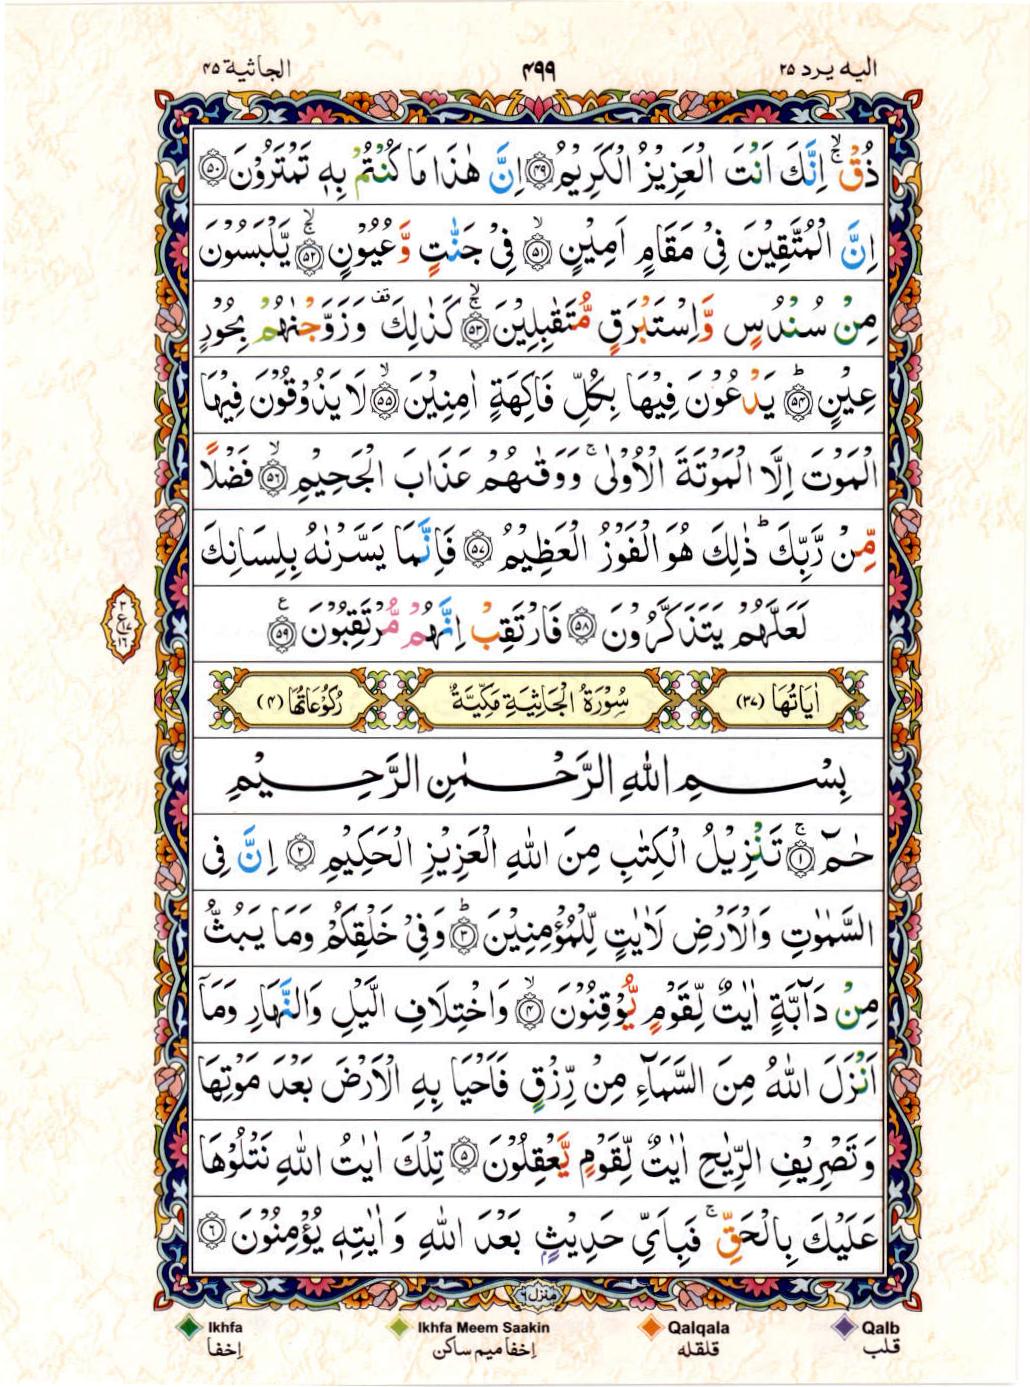 الجاثية ۴۵ ۴۹۹ اليه يرد ۲۵
ذُقْ ۚۙ اِنَّكَ اَنْتَ الْعَزِيْزُ الْكَرِيْمُ ﴿۴۹﴾ اِنَّ هٰذَا مَا كُنْتُمْ بِهٖ تَمْتَرُوْنَ ﴿۵۰﴾
اِنَّ الْمُتَّقِيْنَ فِىْ مَقَامٍ اَمِيْنٍ ۙ﴿۵۱﴾ فِىْ جَنّٰتٍ وَّعُيُوْنٍ ۚۙ﴿۵۲﴾ يَّلْبَسُوْنَ
مِنْ سُنْدُسٍ وَّاِسْتَبْرَقٍ مُّتَقٰبِلِيْنَ ۚۙ﴿۵۳﴾ كَذٰلِكَ قف وَزَوَّجْنٰهُمْ بِحُوْرٍ
عِيْنٍ ؕ﴿۵۴﴾ يَدْعُوْنَ فِيْهَا بِكُلِّ فَاكِهَةٍ اٰمِنِيْنَ ۙ﴿۵۵﴾ لَا يَذُوْقُوْنَ فِيْهَا
الْمَوْتَ اِلَّا الْمَوْتَةَ الْاُوْلٰى ۚ وَوَقٰىهُمْ عَذَابَ الْجَحِيْمِ ۙ﴿۵۶﴾ فَضْلًا
مِّنْ رَّبِّكَ ؕ ذٰلِكَ هُوَ الْفَوْزُ الْعَظِيْمُ ﴿۵۷﴾ فَاِنَّمَا يَسَّرْنٰهُ بِلِسَانِكَ
لَعَلَّهُمْ يَتَذَكَّرُوْنَ ﴿۵۸﴾ فَارْتَقِبْ اِنَّهُمْ مُّرْتَقِبُوْنَ ﴿۵۹﴾ ع
۳
ع ۱۷
۱۶
اٰيَاتُهَا (۳۷) سُوْرَةُ الْجَاثِيَةِ مَكِّيَّةٌ رُكُوْعَاتُهَا (۴)
بِسْمِ اللّٰهِ الرَّحْمٰنِ الرَّحِيْمِ
حٰمٓ ۚ﴿۱﴾ تَنْزِيْلُ الْكِتٰبِ مِنَ اللّٰهِ الْعَزِيْزِ الْحَكِيْمِ ﴿۲﴾ اِنَّ فِى
السَّمٰوٰتِ وَالْاَرْضِ لَاٰيٰتٍ لِّلْمُؤْمِنِيْنَ ؕ﴿۳﴾ وَفِىْ خَلْقِكُمْ وَمَا يَبُثُّ
مِنْ دَآبَّةٍ اٰيٰتٌ لِّقَوْمٍ يُّوْقِنُوْنَ ۙ﴿۴﴾ وَاخْتِلَافِ الَّيْلِ وَالنَّهَارِ وَمَاۤ
اَنْزَلَ اللّٰهُ مِنَ السَّمَآءِ مِنْ رِّزْقٍ فَاَحْيَا بِهِ الْاَرْضَ بَعْدَ مَوْتِهَا
وَتَصْرِيْفِ الرِّيٰحِ اٰيٰتٌ لِّقَوْمٍ يَّعْقِلُوْنَ ﴿۵﴾ تِلْكَ اٰيٰتُ اللّٰهِ نَتْلُوْهَا
عَلَيْكَ بِالْحَقِّ ۚ فَبِاَىِّ حَدِيْثٍۭ بَعْدَ اللّٰهِ وَاٰيٰتِهٖ يُؤْمِنُوْنَ ﴿۶﴾
منزل ۶
Ikhfa Ikhfa Meem Saakin Qalqala Qalb
إخفا إخفا ميم ساكن قلقله قلب